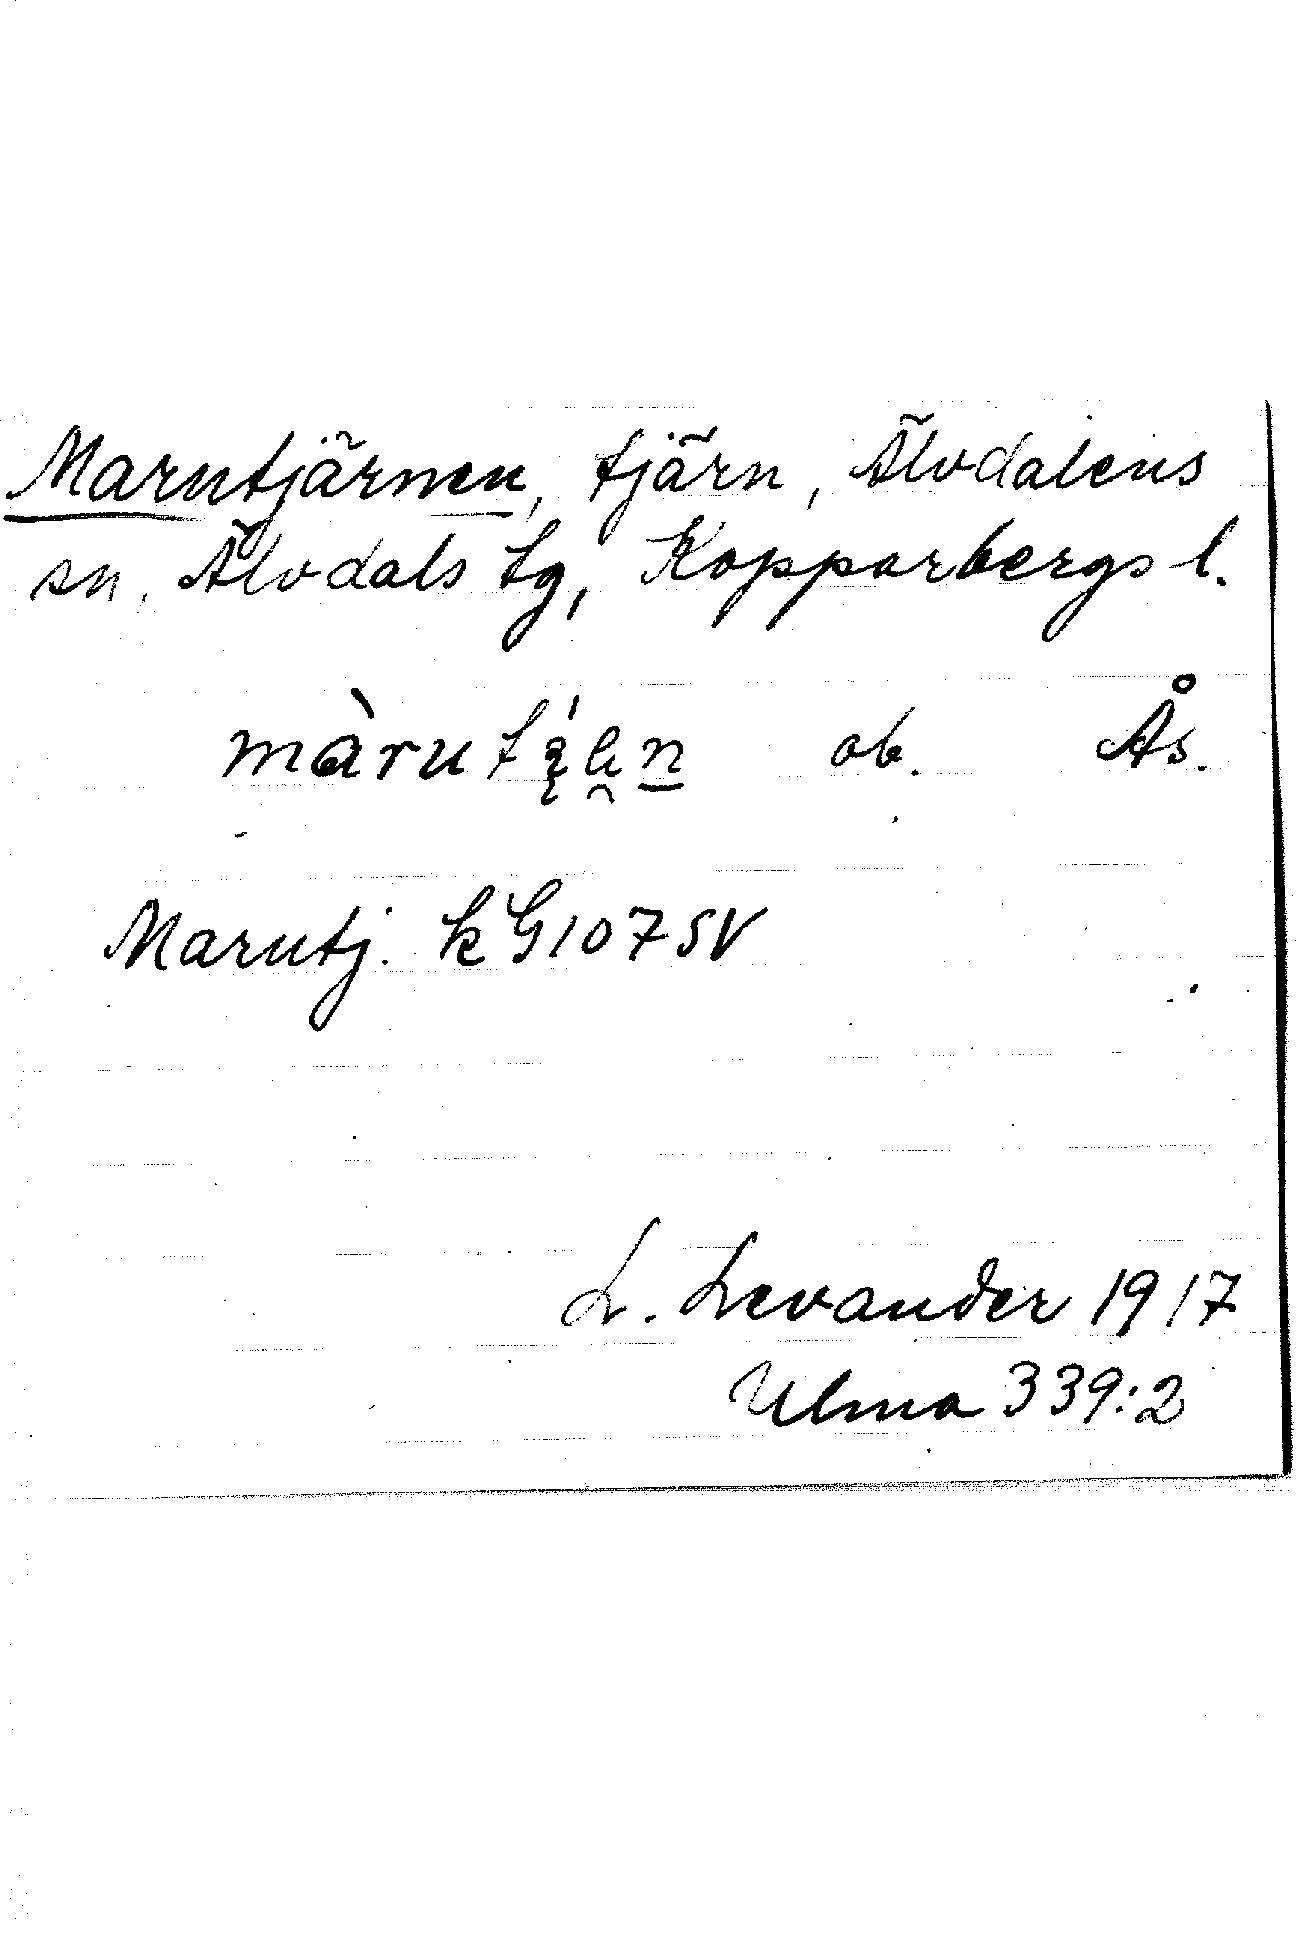 Marutjärnen, tjärn, Älvdalens
sn, Älvdals tg, Kopparbergs l.
ob. Ås.
Marutj. kG107SV
L. Levander 1917
Ulma 339:2